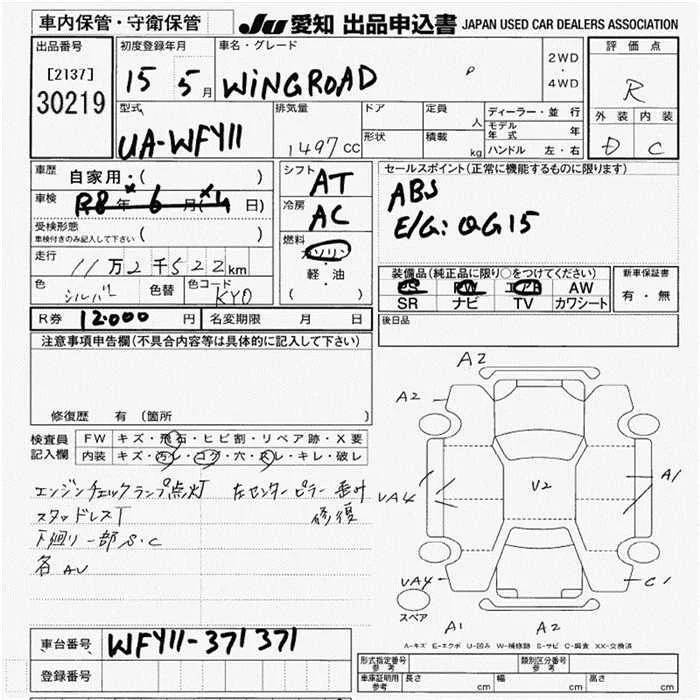 車内保管・守衛保管
Ju 愛知 出品申込書 JAPAN USED CAR DEALERS ASSOCIATION
出品番号
[2137]
30219
初度登録年月
15 5月
車名・グレード
WiNGROAD
2WD
・
4WD
評価点
R
外装 内装
D C
型式
UA-WFY11
排気量
1497cc
ドア
形状
定員
人
積載
kg
ディーラー・並行
モデル年式 年
ハンドル 左・右
車歴
自家用・( )
車検
R8年 6月(4日)
受検形態
車検付きのみ記入して下さい ( )
走行
11万2千522km
色
シルバー
色替
色コード
KY0
シフト
AT
冷房
AC
燃料
ガソリン
・
軽・油
( )
セールスポイント(正常に機能するものに限ります)
ABS
E/G: QG15
装備品(純正品に限り○をつけてください)
PS PW エアB AW
SR ナビ TV カワシート
新車保証書
有・無
R券 12000円 名変期限 月 日
後日品
注意事項申告欄(不具合内容等は具体的に記入して下さい)
修復歴 有 (箇所 )
検査員記入欄
FW キズ・飛石・ヒビ割・リペア跡・X要
内装 キズ・汚レ・コゲ・穴・スレ・キレ・破レ
エンジンチェックランプ点灯 左センターピラー
修復
スタッドレスT
下廻り一部S.C
各AU
A2
A2
VA4
V2
A1
VA4
C1
スペア
A1
A2
A-キズ E-エクボ U-凹み W-補修跡 S-サビ C-腐食 XX-交換済
車台番号 WFY11-371371
登録番号
形式指定番号
参考
類別区分番号
参考
車庫証明用
参考
長さ cm 幅 cm 高さ cm